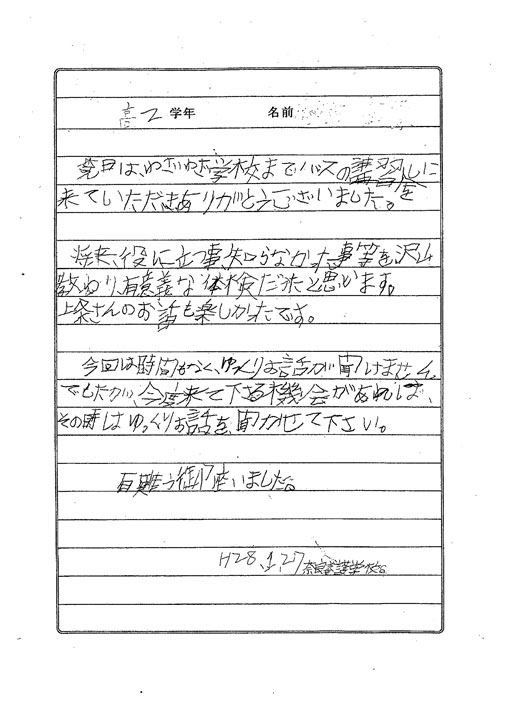 高2 学年 名前
先日は、わざわざ学校までバスの講習会に
来ていただきありがとうございました。
将来、役に立つ事、知らなかった事等を沢山
教わり、有意義な体検だったと思います。
上条さんのお話も楽しかったです。
今回は時間もなく、ゆっくりお話が聞けません
でしたが、今度来て下さる機会があれば、
その時はゆっくりお話を、聞かせて下さい。
有難う御座いました。
H28.1.27 奈良養護学校